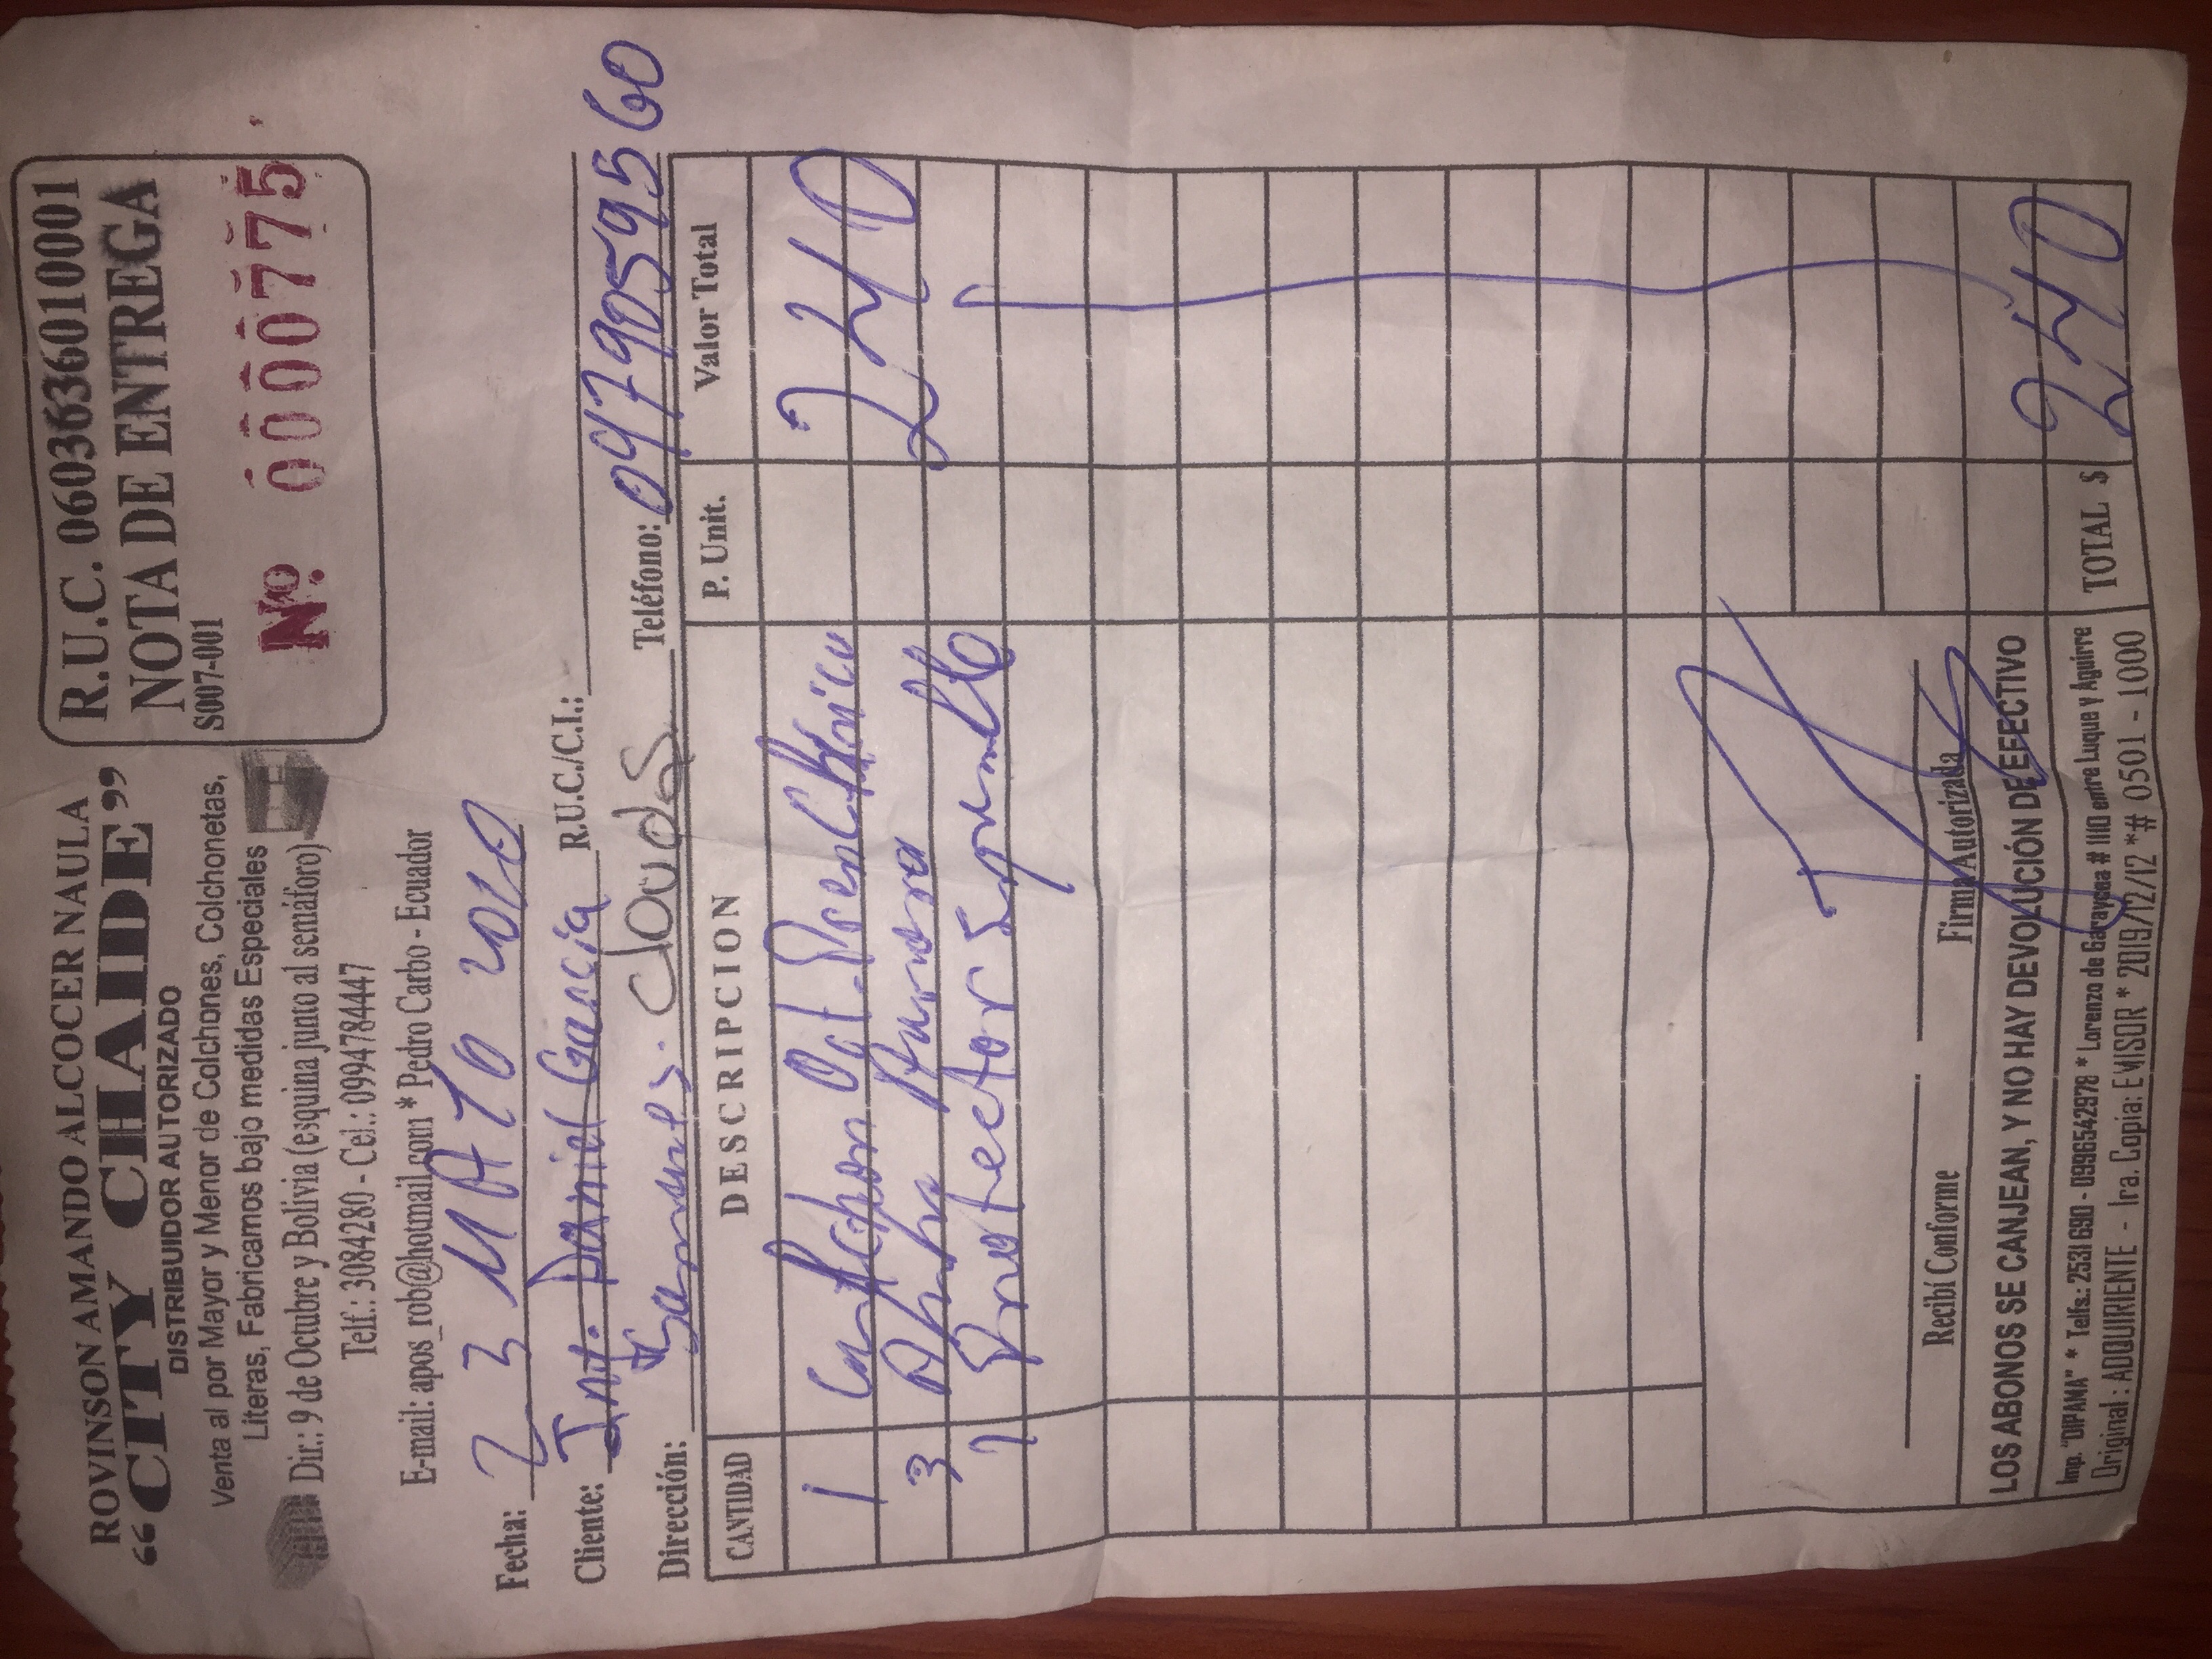 ROVINSON AMANDO ALCOCER NAULA
“CITY CHAIDE”
DISTRIBUIDOR AUTORIZADO
Venta al por Mayor y Menor de Colchones, Colchonetas,
Literas, Fabricamos bajo medidas Especiales
Dir.: 9 de Octubre y Bolivia (esquina junto al semáforo)
Telf.: 3084280 - Cel.: 0994784447
E-mail: apos_rob@hotmail.com * Pedro Carbo - Ecuador
R.U.C. 0603636010001
NOTA DE ENTREGA
S007-001
Nº 0000775
Fecha: 23 MAYO 2020
Cliente: Ing. Daniel García R.U.C./C.I.:
Dirección: Clouds Teléfono: 0979059560
CANTIDAD DESCRIPCION P. Unit. Valor Total
1 240
3 Aurora
1 Protector
Recibí Conforme Firma Autorizada
LOS ABONOS SE CANJEAN, Y NO HAY DEVOLUCIÓN DE EFECTIVO
Imp. "DIPAMA" * Telfs.: 2531690 - 0996542978 * Lorenzo de Garaycoa # 1110 entre Luque y Aguirre
Original : ADQUIRIENTE - 1ra. Copia: EMISOR * 2019/12/12 *# 0501 - 1000
TOTAL $ 240